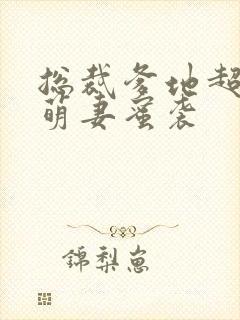 总裁爹地超
萌妻蜜袭
锦梨崽